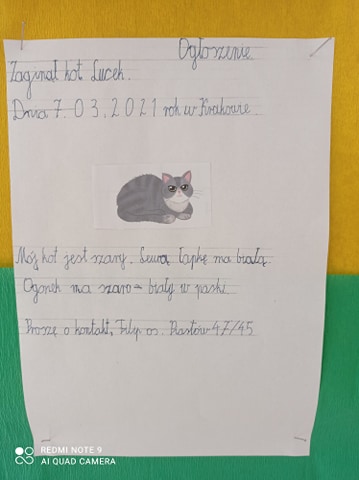 Ogłoszenie
Zaginął kot Lucek.
Dnia 7. 03. 2021 rok w Krakowie
Mój kot jest szary. Lewą łapkę ma białą.
Ogonek ma szaro - biały w paski
Proszę o kontakt, Filip os. Piastów 47/45
REDMI NOTE 9
AI QUAD CAMERA